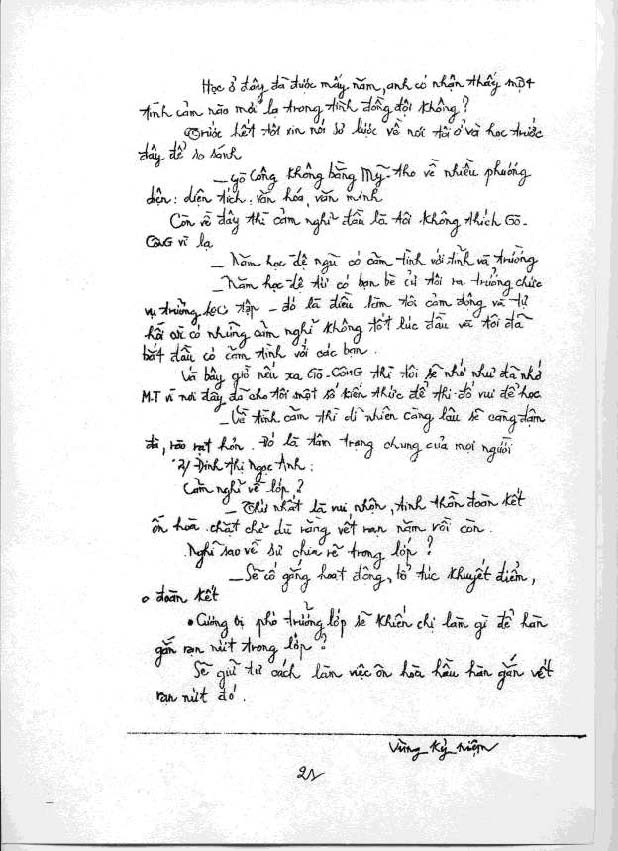 Học ở đây đã được mấy năm, anh có nhận thấy một
tình cảm nào mới lạ trong tình đồng đội không?
Trước hết tôi xin nói sơ lược về nơi tôi ở và học trước
đây để so sánh
_ Gò Công không bằng Mỹ-Tho về nhiều phương
diện: diện tích, văn hóa, văn minh
Còn về đây thì cảm nghĩ đầu là tôi không thích Gò-
Công vì lạ
_ Năm học đệ ngũ có cảm tình với tỉnh và trường
_ Năm học đệ tứ có bạn bè cử tôi ra trưởng chức
vụ trưởng học tập - đó là điều làm tôi cảm động và tự
hối vì có những cảm nghĩ không tốt lúc đầu và tôi đã
bắt đầu có cảm tình với các bạn.
Và bây giờ nếu xa Gò-Công thì tôi sẽ nhớ như đã nhớ
M.T vì nơi đây đã cho tôi một số kiến thức để thi đố vui để học
_ Về tình cảm thì dĩ nhiên càng lâu sẽ càng đậm
đà, rào rạt hơn. Đó là tâm trạng chung của mọi người
2/ Đinh Thị Ngọc Anh:
Cảm nghĩ về lớp?
_ Thứ nhất là vui nhộn, tinh thần đoàn kết
ôn hòa. chặt chẽ dù rằng vết rạn năm rồi còn.
Nghĩ sao về sự chia rẽ trong lớp?
_ Sẽ cố gắng hoạt động, bổ túc khuyết điểm,
đoàn kết
• Cương vị phó trưởng lớp sẽ khiến chị làm gì để hàn
gắn rạn nứt trong lớp?
Sẽ giữ tư cách làm việc ôn hòa hầu hàn gắn vết
rạn nứt đó.
Vùng kỷ niệm
21